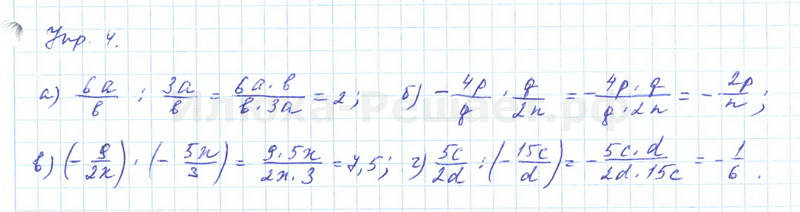 Упр. 4.
а) 6a/b : 3a/b = 6a·b/b·3a = 2; б) -4p/q · q/2n = -4p·q/q·2n = -2p/n;
в) (-9/2x) · (-5x/3) = 9·5x/2x·3 = 7,5; г) 5c/2d : (-15c/d) = -5c·d/2d·15c = -1/6.